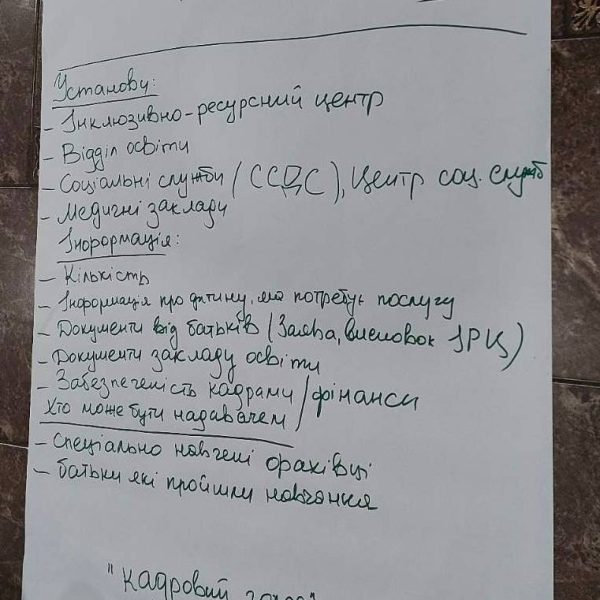 Установи:
- Інклюзивно-ресурсний центр
- Відділ освіти
- Соціальні служби (ССДС), Центр соц. служб
- Медичні заклади
Інформація:
- Кількість
- Інформація про дитину, яка потребує послугу
- Документи від батьків (Заява, висновок ІРЦ)
- Документи закладу освіти
- Забезпеченість кадрами / фінанси
Хто може бути надавачем
- спеціально навчені фахівці
- батьки які пройшли навчання
"Кадровий